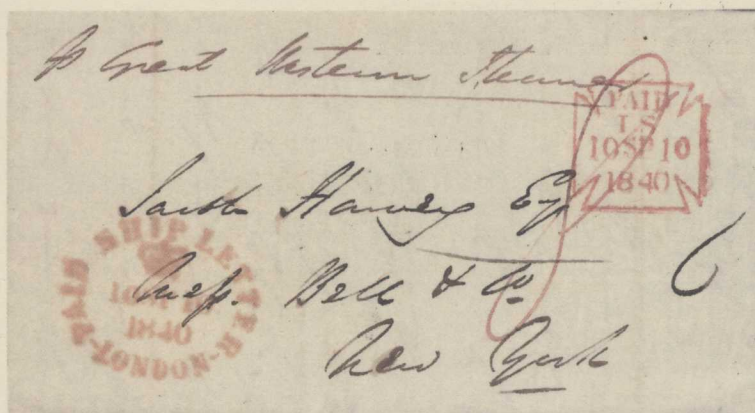 p Great Western Steamer
PAID
LS
10SP10
1840
Jacob Harvey Esq
Messrs. Bell & Co
New York
6
PAID SHIP LETTER
1840
LONDON